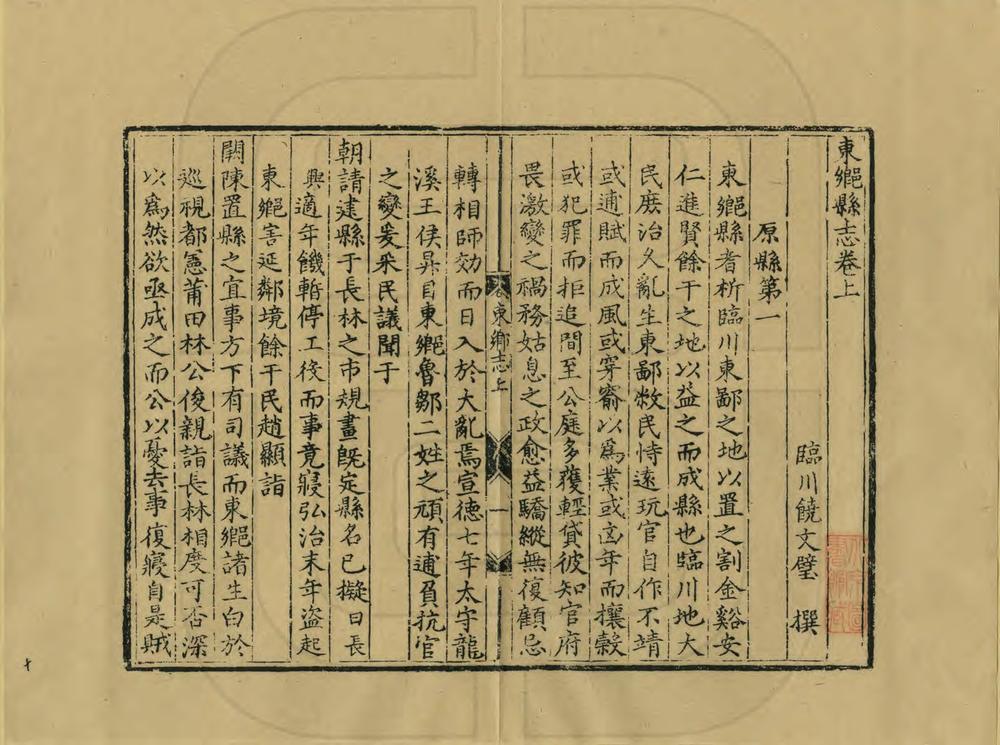 東鄉縣志卷上
臨川饒文璧 撰
原縣第一
東鄉縣者析臨川東鄙之地以置之割金谿安
仁進賢餘干之地以益之而成縣也臨川地大
民庶治久亂生東鄙敝民恃遠玩官自作不靖
或逋賦而成風或穿窬以爲業或凶年而攘穀
或犯罪而拒追間至公庭多獲輕貸彼知官府
畏激變之禍務姑息之政愈益驕縱無復顧忌
東鄉志上
一
轉相師効而日入於大亂焉宣德七年太守龍
溪王侯昇目東鄉魯鄒二姓之頑有逋負抗官
之變爰采民議聞于
朝請建縣于長林之市規畫旣定縣名已擬曰長
興適年饑暫停工役而事竟寢弘治末年盜起
東鄉害延鄰境餘干民趙顯詣
闕陳置縣之宜事方下有司議而東鄉諸生白於
巡視都憲莆田林公俊親詣長林相度可否深
以爲然欲亟成之而公以憂去事復寢自是賊